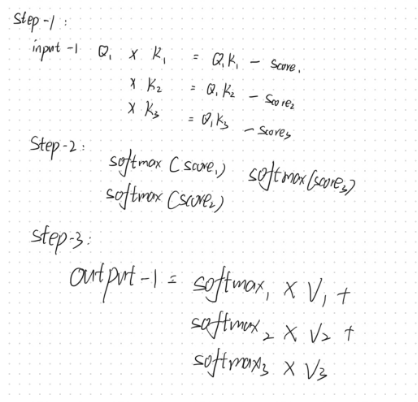 Step-1:
input-1 Q₁ × K₁ = Q₁K₁ - Score₁
× K₂ = Q₁K₂ - Score₂
× K₃ = Q₁K₃ - Score₃
Step-2:
softmax (score₁) softmax(score₃)
softmax (score₂)
step-3:
output-1 = softmax₁ × V₁ +
softmax₂ × V₂ +
softmax₃ × V₃